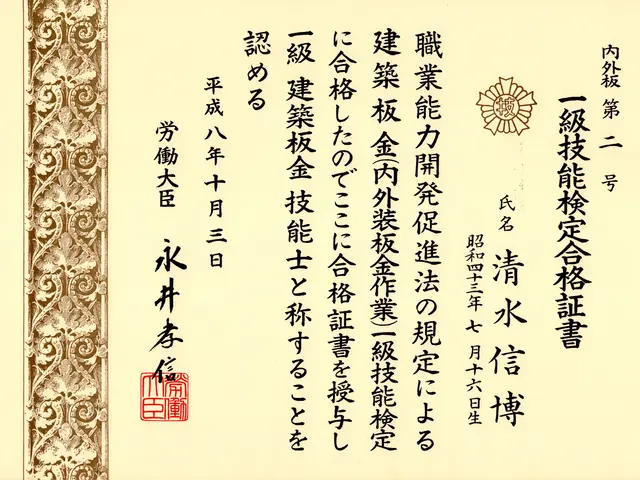 内外板 第二号
一級技能検定合格証書
技
氏名 清水信博
昭和四十三年七月十六日生
職業能力開発促進法の規定による
建築板金(内外装板金作業)一級技能検定
に合格したのでここに合格証書を授与し
一級 建築板金 技能士と称することを
認める
平成八年十月三日
労働大臣 永井孝信
労働大臣